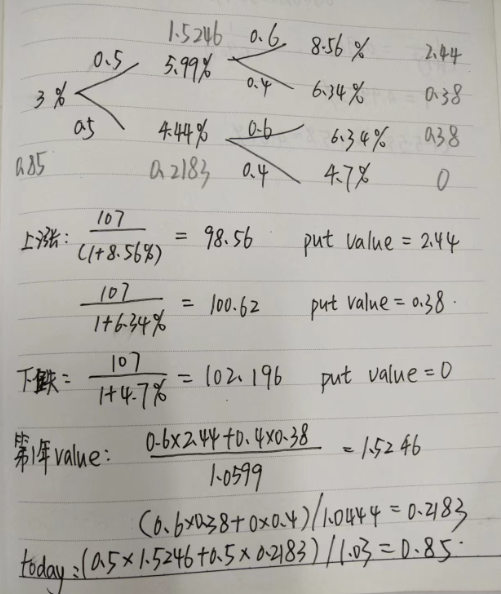 1.5246 0.6 8.56% 2.44
0.5 5.99% 0.4 6.34% 0.38
3%
0.5 4.44% 0.6 6.34% 0.38
0.85 0.2183 0.4 4.7% 0
上涨: 107/(1+8.56%) = 98.56 put value = 2.44
107/1+6.34% = 100.62 put value = 0.38.
下跌= 107/1+4.7% = 102.196 put value = 0
第1年value: 0.6×2.44+0.4×0.38/1.0599 = 1.5246
(0.6×0.38+0×0.4)/1.0444 = 0.2183
today:(0.5×1.5246+0.5×0.2183)/1.03 = 0.85.